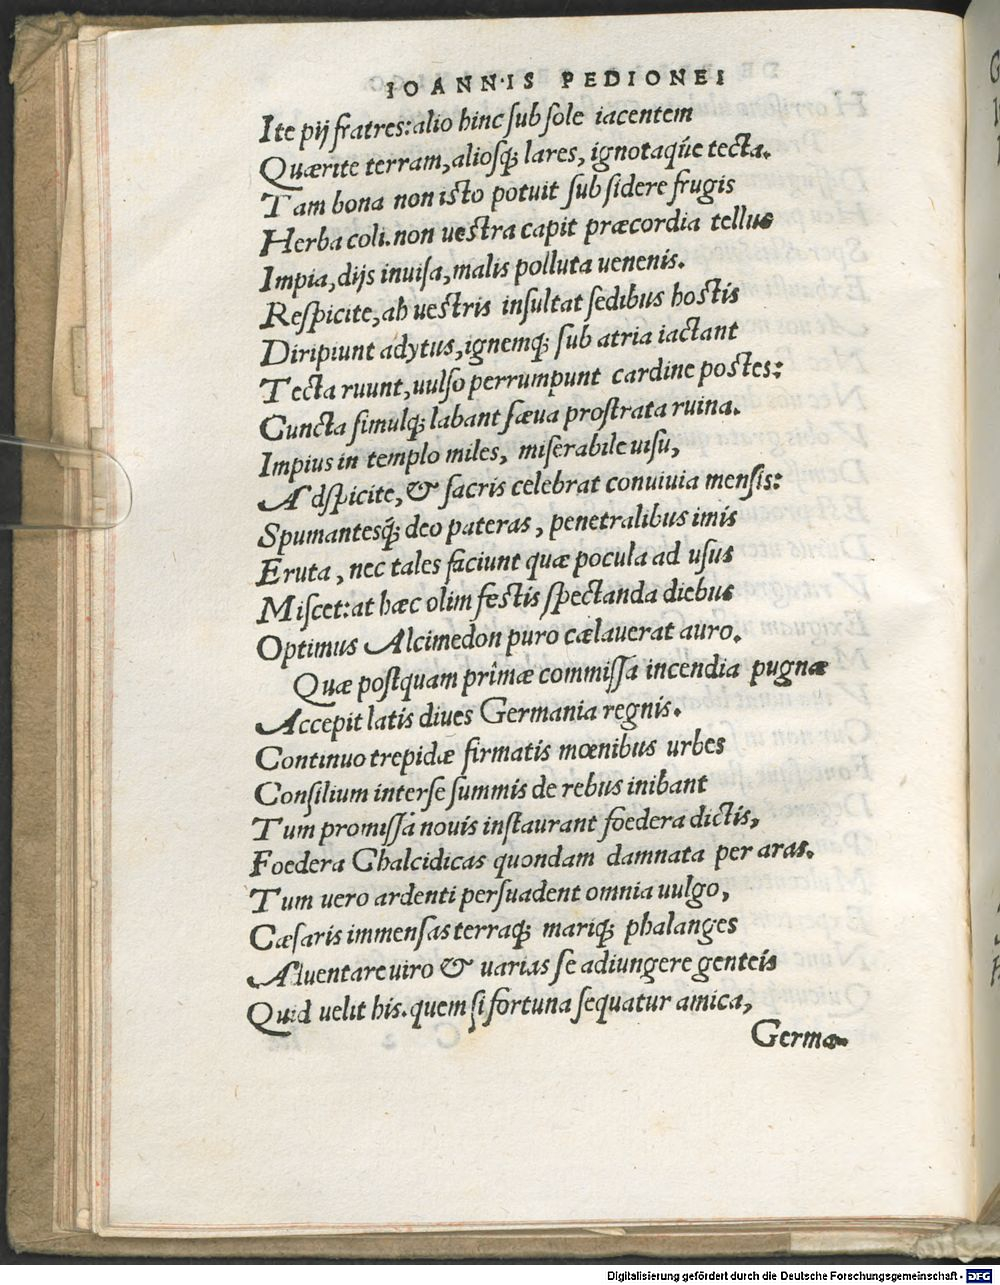 IOANNIS PEDIONEI
Ite pij fratres: alio hinc sub sole iacentem
Quærite terram, aliosq; lares, ignotaq́ue tecta.
Tam bona non isto potuit subsidere frugis
Herba coli. non uestra capit præcordia tellus
Impia, dijs inuisa, malis polluta uenenis.
Respicite, ah uestris insultat sedibus hostis
Diripiunt adytus, ignemq; sub atria iactant
Tecta ruunt, uulso perrumpunt cardine postes:
Cuncta simulq; labant sæua prostrata ruina.
Impius in templo miles, miserabile uisu,
Adspicite, & sacris celebrat conuiuia mensis:
Spumantesq́; deo pateras, penetralibus imis
Eruta, nec tales faciunt quæ pocula ad usus
Miscet: at hæc olim festis spectanda diebus
Optimus Alcimedon puro cælauerat auro.
Quæ postquam primæ commissa incendia pugnæ
Accepit latis diues Germania regnis.
Continuo trepidæ firmatis mœnibus urbes
Consilium inter se summis de rebus inibant
Tum promissa nouis instaurant foedera dictis,
Foedera Chalcidicas quondam damnata per aras.
Tum uero ardenti persuadent omnia uulgo,
Cæsaris immensas terraq; mariq; phalanges
Aduentare uiro & uarias se adiungere genteis
Quid uelit his. quem si fortuna sequatur amica,
Germa-
Digitalisierung gefördert durch die Deutsche Forschungsgemeinschaft - DFG